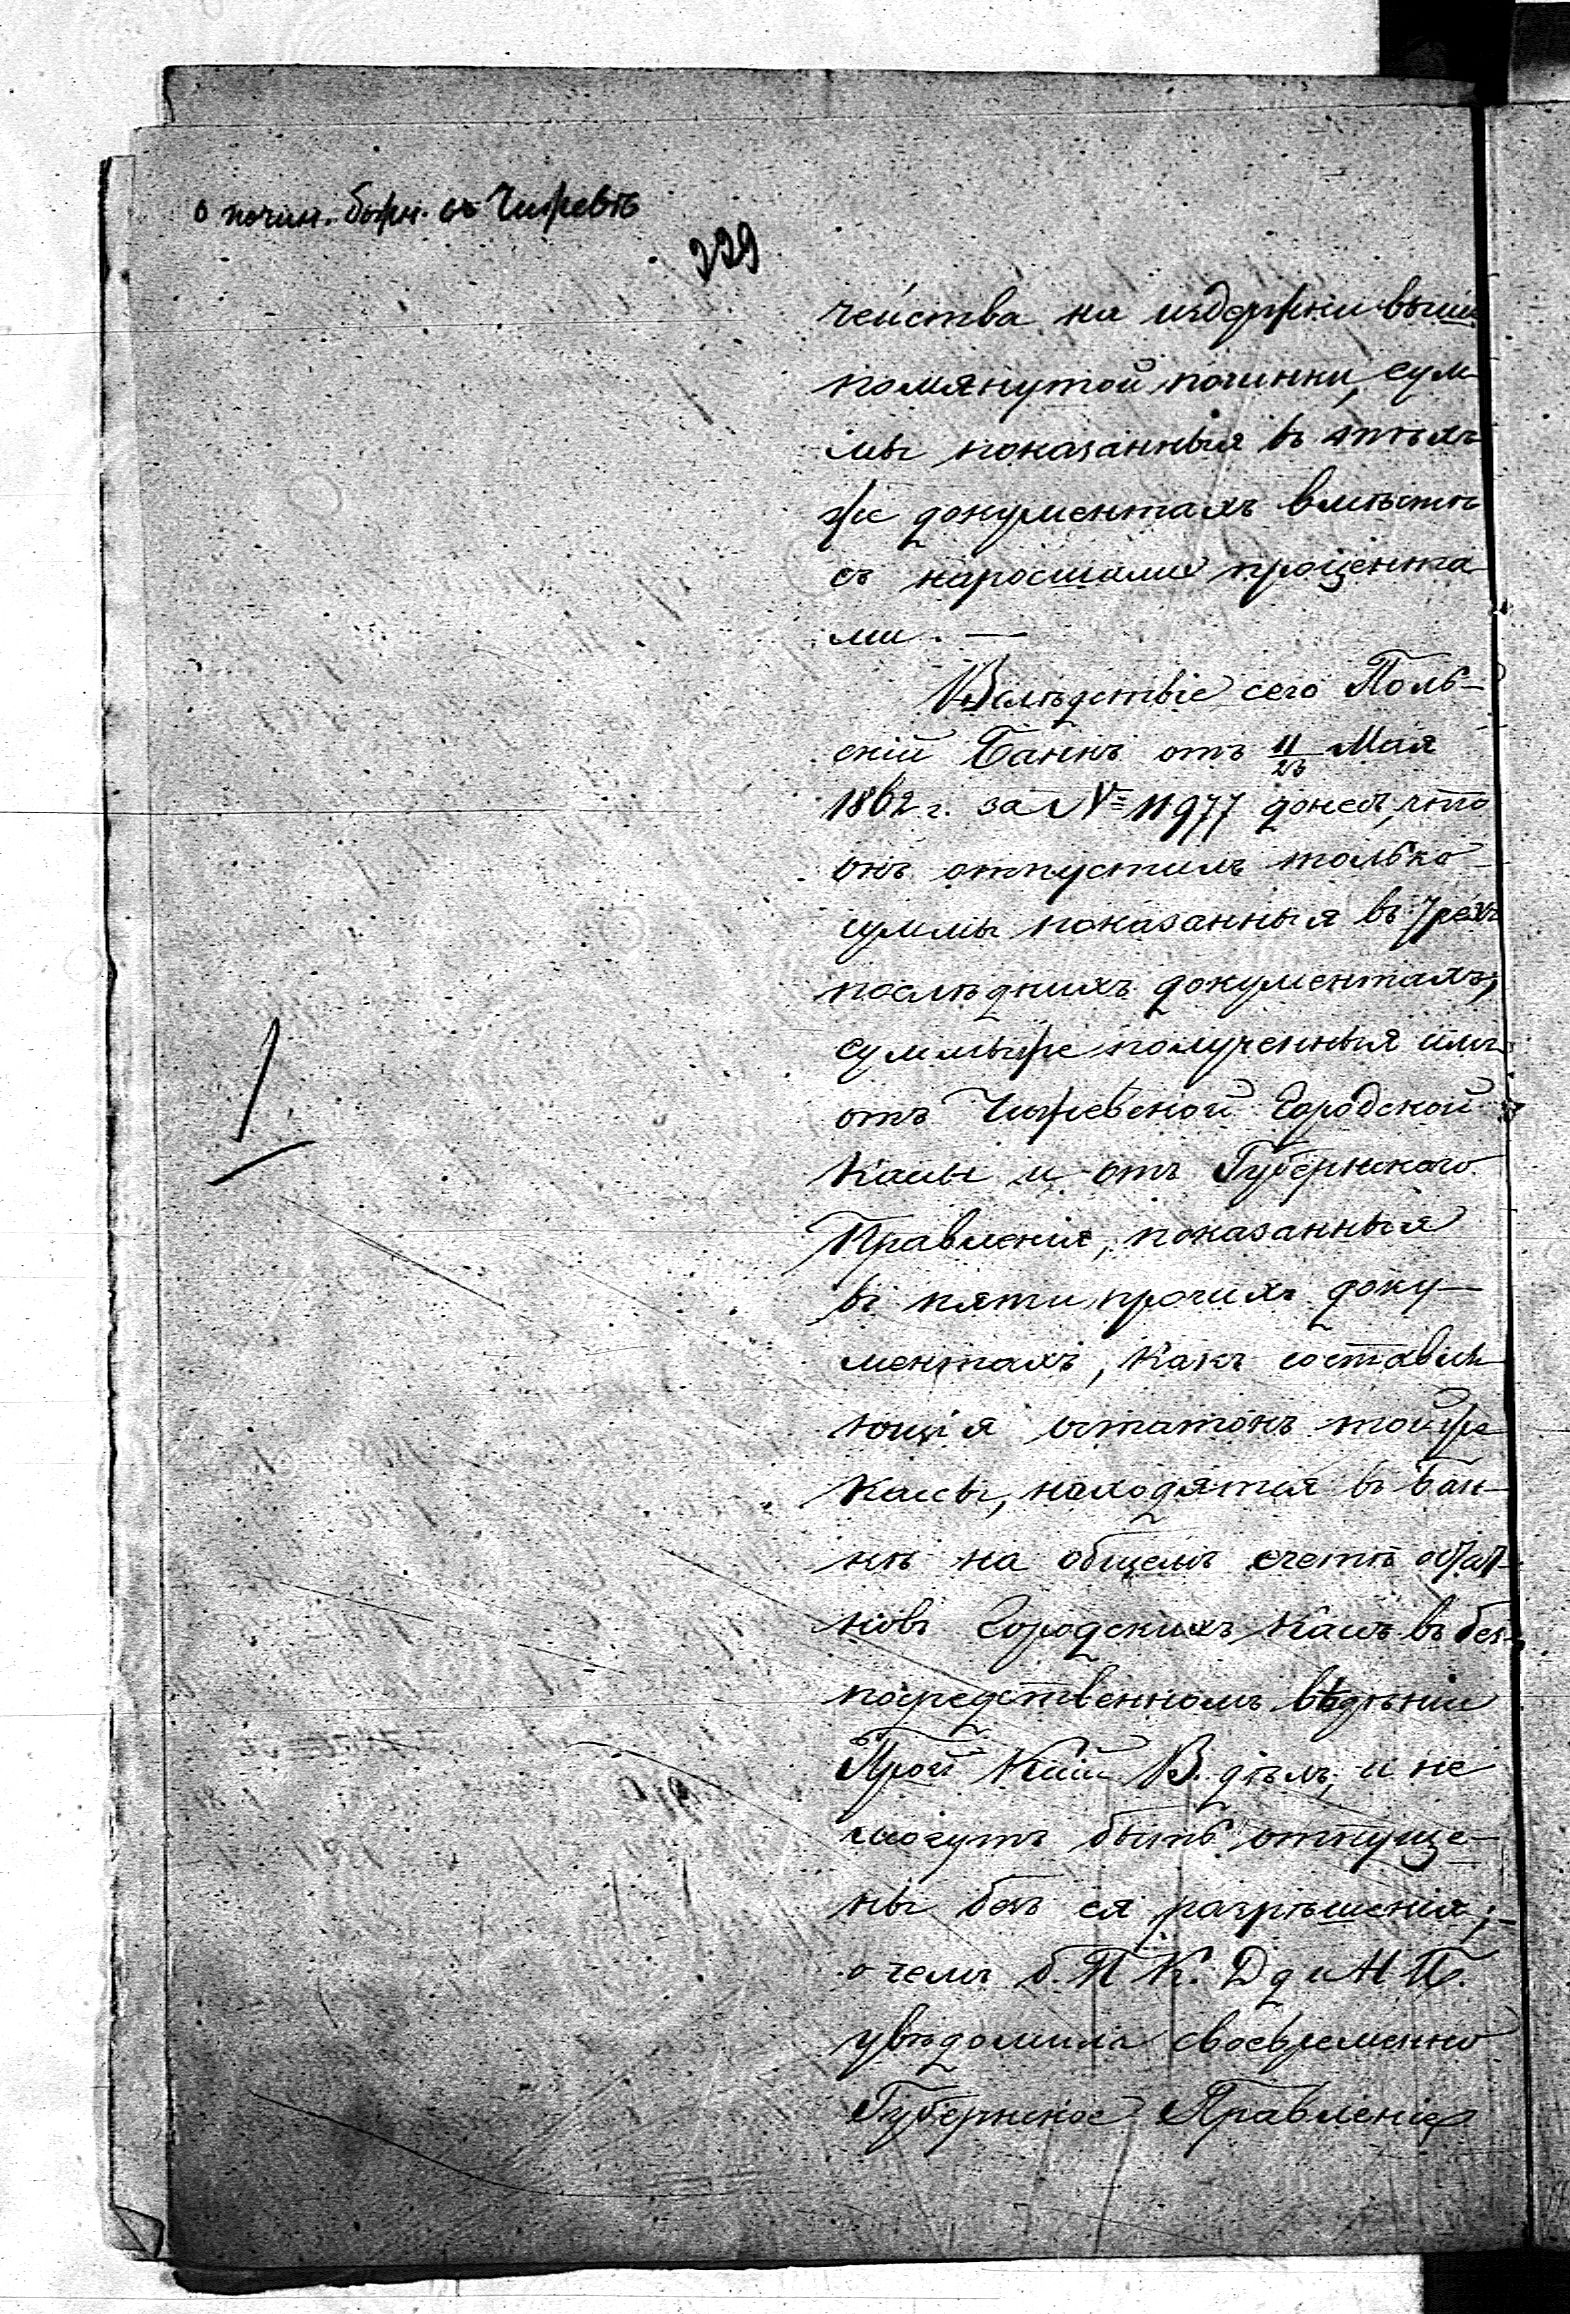 о почин. божн. въ Чижевѣ
229
чейства на издержки выше
помянутой починки, сум
мы показанныя въ этихъ
же документахъ вмѣстѣ
съ наросшими процента
ми. —
Вслѣдствіе сего Поль-
скій Банкъ отъ 11/23 Мая
1862 г. за № 11977 донесъ, что
онъ отпустилъ только
суммы показанныя въ трехъ
послѣднихъ документахъ;
суммыже полученныя имъ
отъ Чижевской Городской
Кассы и отъ Губернскаго
Правленія, показанныя
въ пяти прочихъ доку-
ментахъ, какъ составля
ющія остатокъ тойже
Кассы, находятся въ Бан-
кѣ на общемъ счетѣ остат-
ковъ Городскихъ Кассъ въ без-
посредственномъ вѣдѣніи
Прой Кміи В. дѣлъ, и не
могутъ быть отпуще-
ны безъ ея разрѣшенія;
о чемъ б. П К. Д д и Н П.
увѣдомила своевременно
Губернское Правленіе